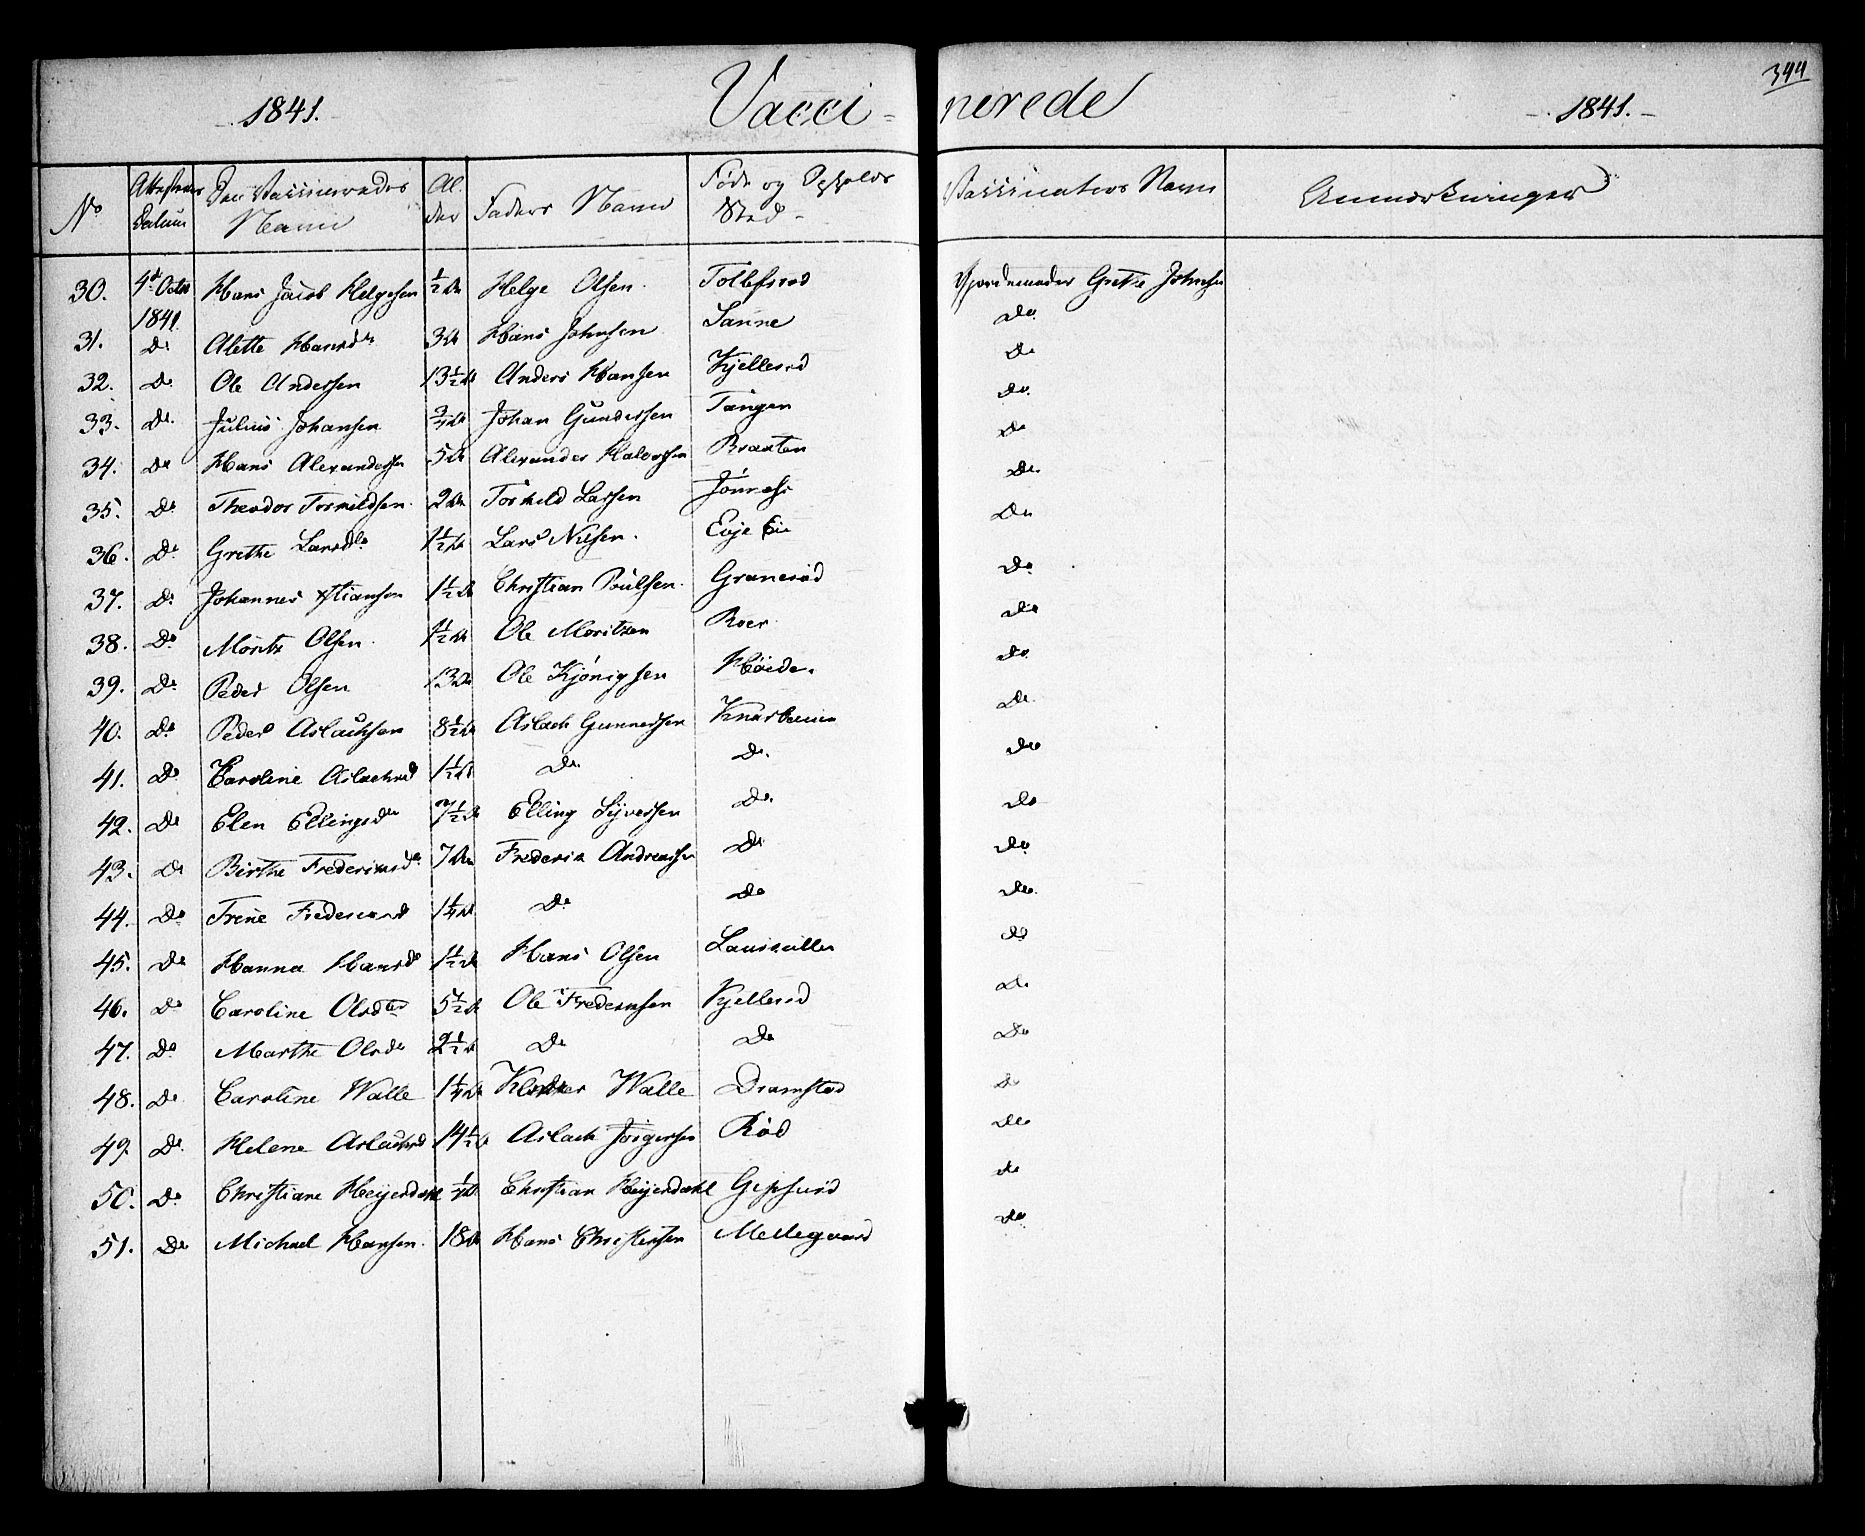 344
1841. Vaccinerede 1841.
No Attestens Datum Den Vaccineredes Navn Alder Faders Navn Føde og Opholds Sted Vaccinateurs Navn Anmærkninger
30. 4de Octbr 1841 Hans Jacob Helgesen ½ Helge Olsen Tollefsrød Gjordemoder Grethe Johnsen
31. Do Alette Hansdr 3 Hans Johnsen Sanne Do
32. Do Ole Andersen 13½ Anders Hansen Kjellerød Do
33. Do Julius Johansen ¾ Johan Gundersen Tangen Do
34. Do Hans Alexandersen 5 Alexander Halvorsen Braaten Do
35. Do Theodor Tormildsen 2 Tormild Larsen Do
36. Do Grethe Larsdr 1½ Lars Nilsen Evje Eie Do
37. Do Johannes Xstiansen 1½ Christian Poulsen Granerød Do
38. Do Moritz Olsen 1½ Ole Moritzen Roer Do
39. Do Peder Olsen 13 Ole Kjönigsen Höiden Do
40. Do Peder Aslachsen 8½ Aslach Gunnersen Do
41. Do Caroline Aslachsd 1½ Do Do Do
42. Do Elen Ellingsdr 7½ Elling Syversen Do Do
43. Do Birthe Frederiksdr 7 Frederik Andreassen Do Do
44. Do Trine Frederiksd 1¼ Do Do Do
45. Do Hanna Hansdr 1½ Hans Olsen Do
46. Do Caroline Olsdter 5½ Ole Frederiksen Kjellerød Do
47. Do Marthe Olsdr 2½ Do Do Do
48. Do Caroline Walle 1¼ Walle Dramstad Do
49. Do Helene Aslachsd 14½ Aslach Jörgensen Röd Do
50. Do Christiane Heyerdahl ¼ Christian Heyerdahl Gipsund Do
51. Do Michael Hansen 18 Hans Christensen Mellegaard Do